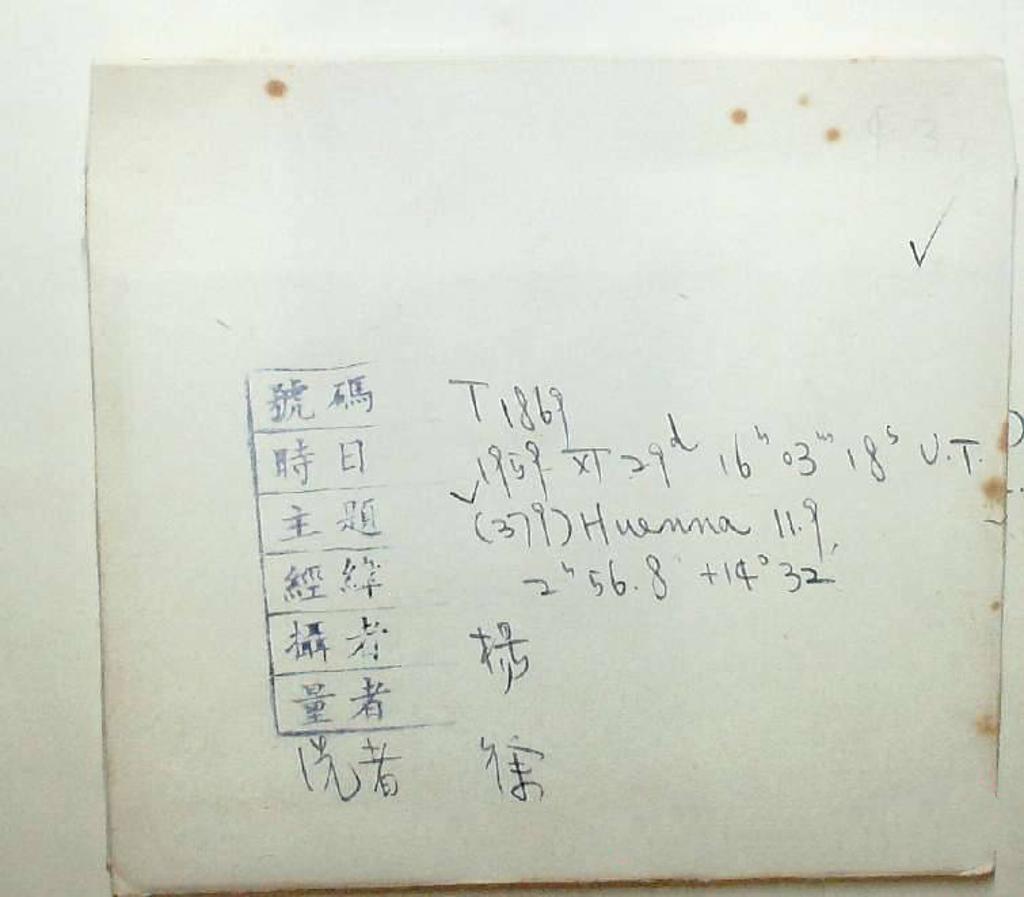 號碼 T 1869
時日 1959 XI 29ᵈ 16ʰ 03ᵐ 18ˢ U.T.
主題 (379) Huenna 11.9
經緯 2ʰ 56.8 +14° 32'
攝者 楊
量者
洗者 徐